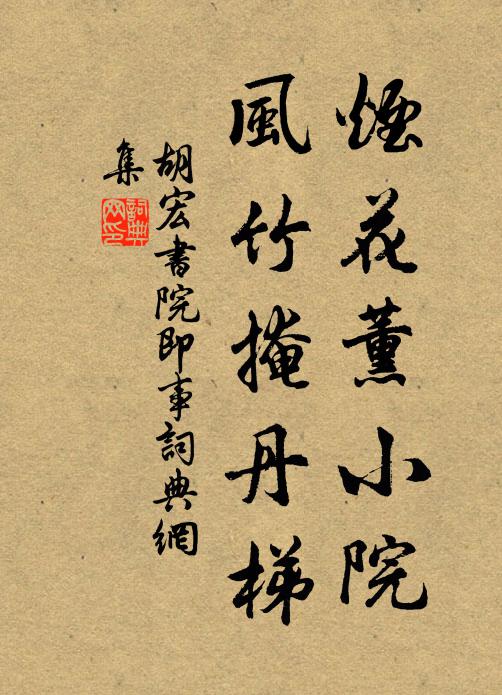 煙花薰小院
風竹掩丹梯
胡宏書院即事詞典網
集
詞典網印